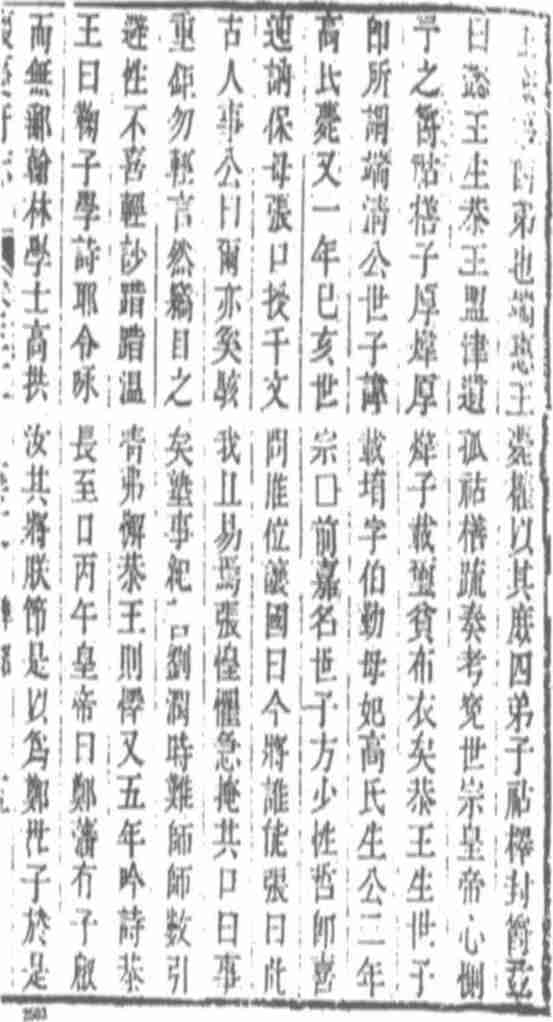 弟也端惠王薨以其庶四弟子祐檡封爵並
曰懿王生恭王盟津遺孤祜橏疏奏考世宗皇帝心惻
予之爵祜橏子厚煒原煒子載壐貧布衣矣恭王生世子
卽所謂端清公世子諱載堉字伯勤母妃高氏生公二年
高氏薨又一年巳亥世宗口前嘉名世子方少性哲卽喜
連訥保母張口授千文問推位讓國曰今將誰能張曰此
古人事公曰爾亦矣駭我且易焉張惶懼急掩其口曰事
重鉅勿輕言然竊目之矣塾事紀言劉潤時難師師數引
性不喜輕訬踖踖溫青弗懈恭王則懌又五年吟詩恭
王曰鞠子學詩耶令咏長至日丙午皇帝曰鄭藩有子啟
而無鄙翰林學士高拱汝其將朕節是以為鄭世子於是
2503